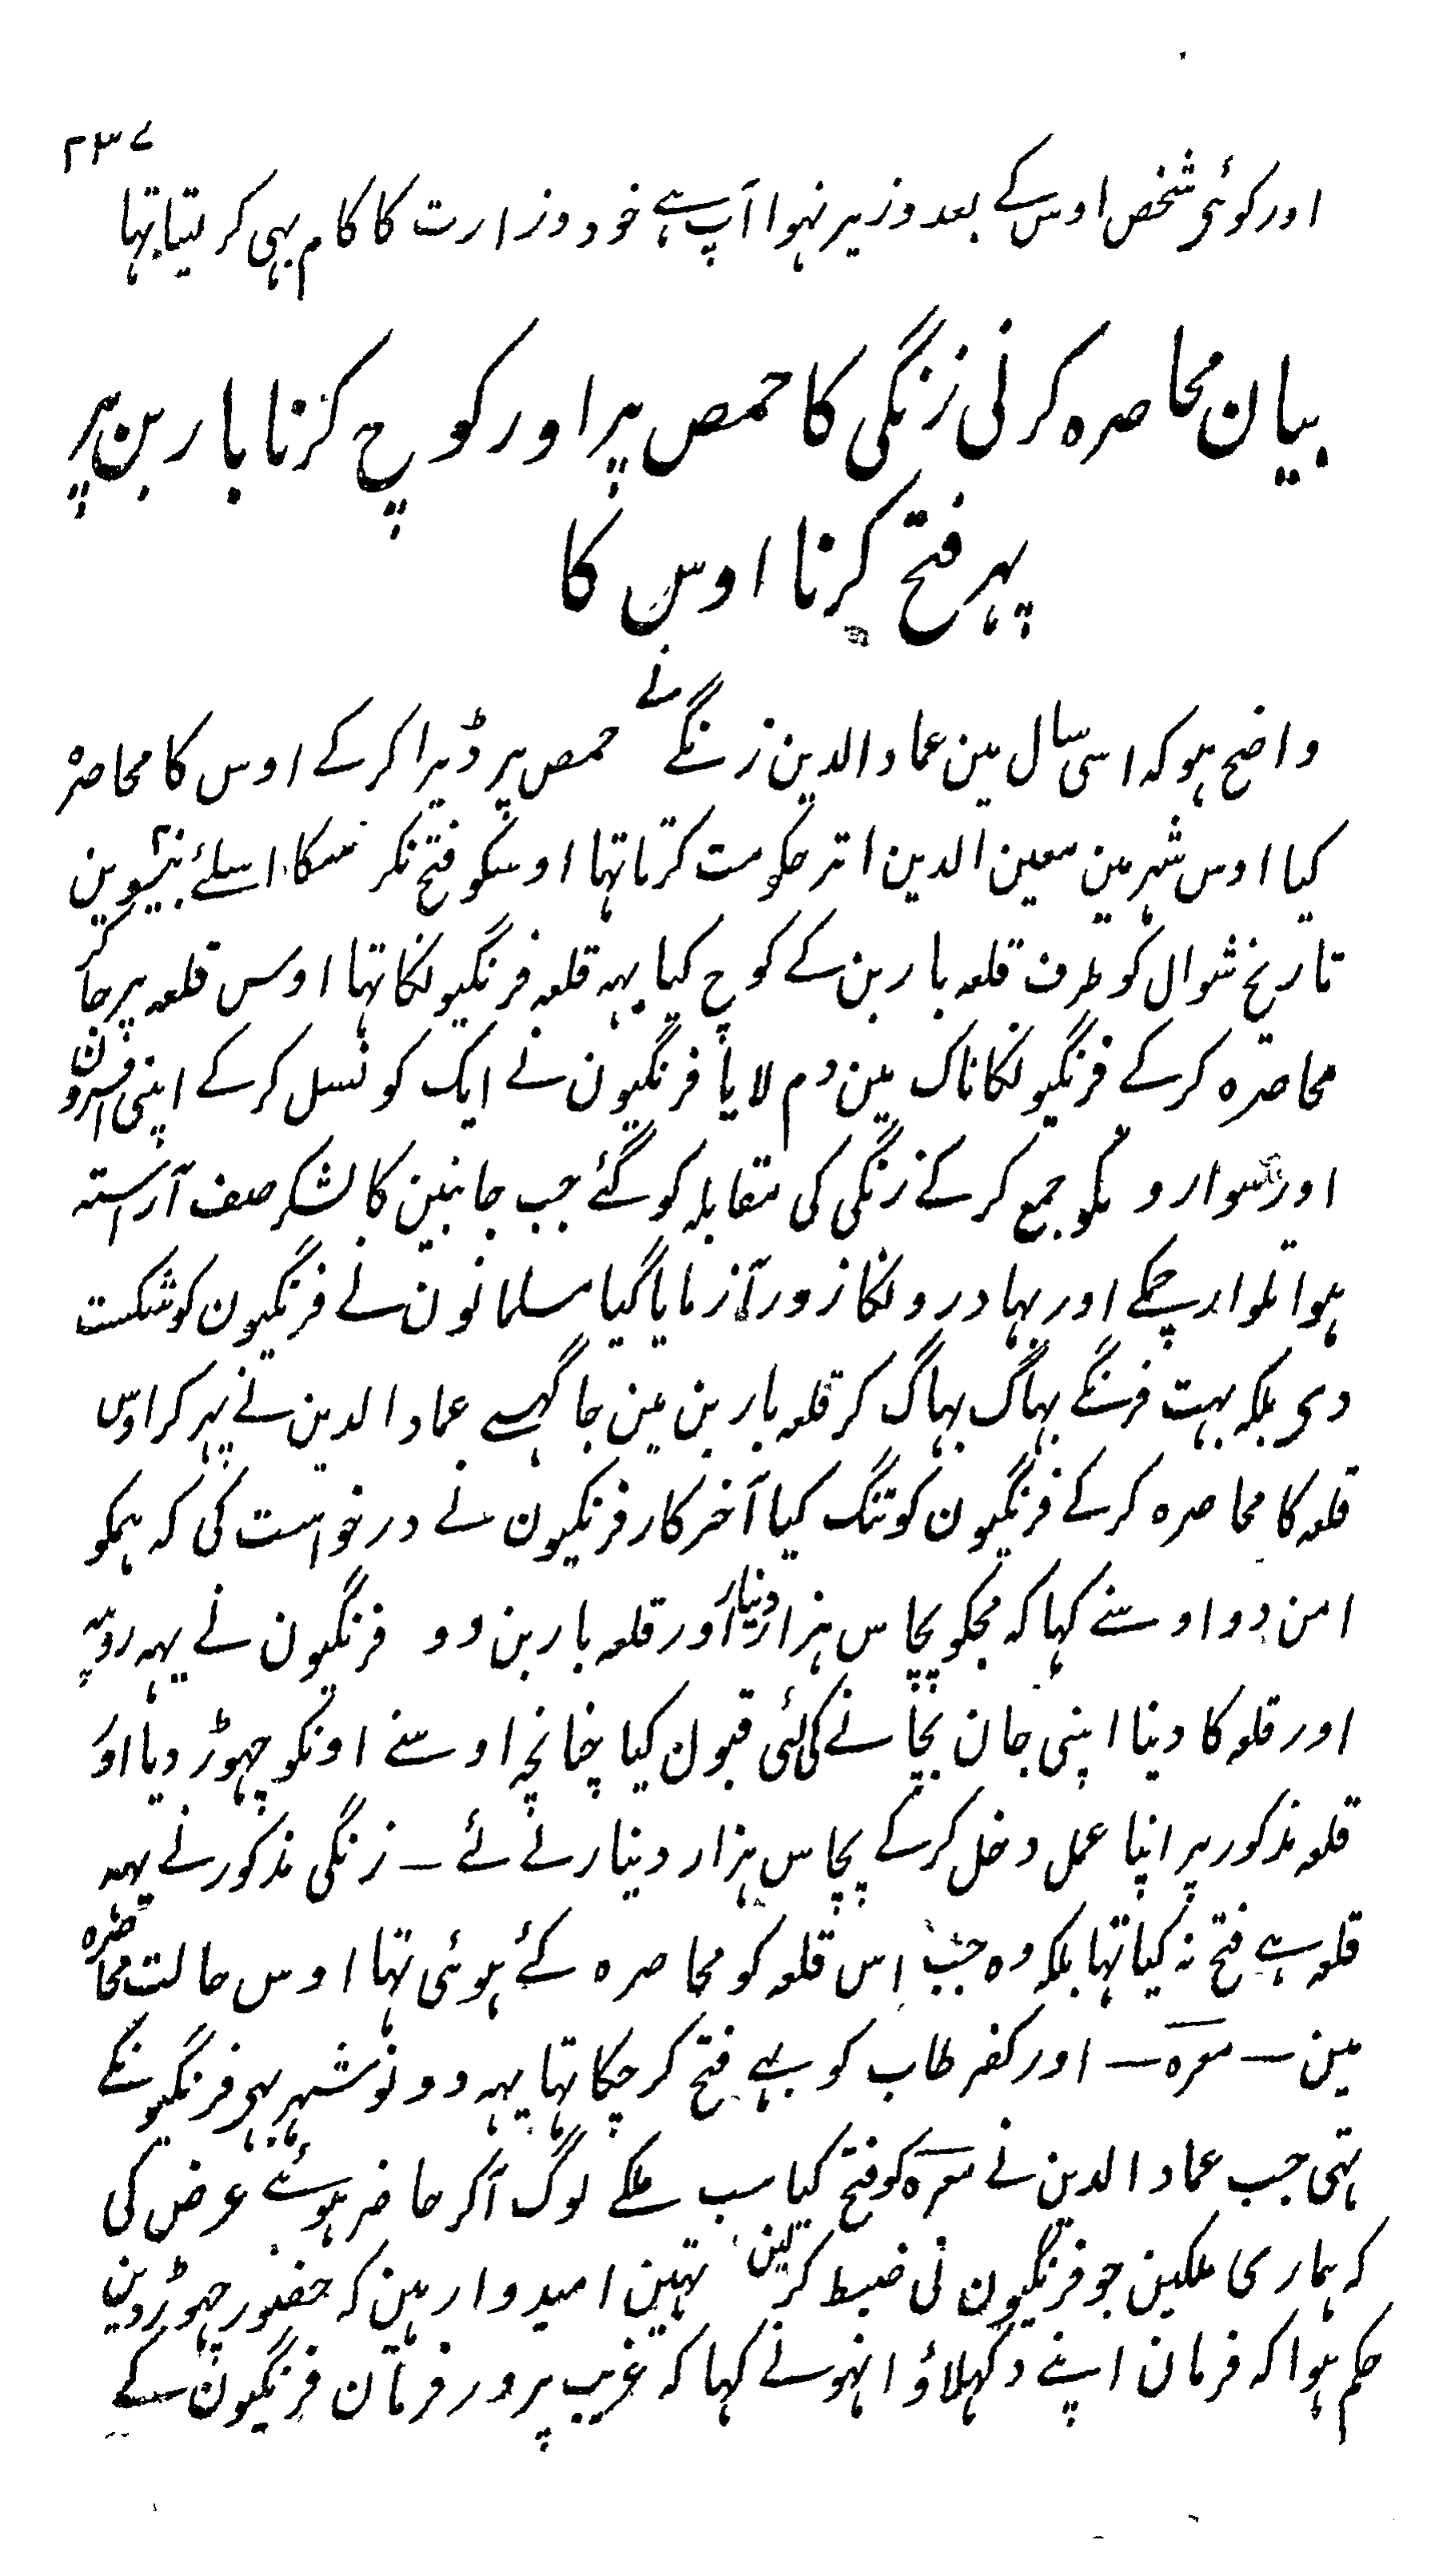 ۲۳۷
اور کوئی شخص اوس کے بعد وزیر نہوا آپ ہے خود وزارت کا کام بہی کر لیتا تہا
بیان محاصرہ کرنی زنگی کا حمص پر اور کوچ کرنا بارین پر
پہر فتح کرنا اوس کا
واضح ہو کہ اسی سال مین عماد الدین زنگے نے حمص پر ڈیرا کر کے اوس کا محاصرہ
کیا اوس شہر مین معین الدین اتر حکومت کرتا تہا اوسکو فتح نکر سکا اسلئے بیسوین
تاریخ شوال کو طرف قلعہ بارین کے کوچ کیا یہہ قلعہ فرنگیونکا تہا اوس قلعہ پر جا کر
محاصرہ کر کے فرنگیونکا ناک مین دم لایا فرنگیون نے ایک کونسل کر کے اپنی افسرون
اور سوارونکو جمع کر کے زنگی کی مقابلہ کو گئے جب جانبین کا لشکر صف آراستہ
ہوا تلوار چمکے اور بہادرونکا زور آزمایا گیا مسلمانون نے فرنگیون کو شکست
دی بلکہ بہت فرنگے بہاگ بہاگ کر قلعہ بارین مین جا گہسے عماد الدین نے پہر کر اوس
قلعہ کا محاصرہ کر کے فرنگیون کو تنگ کیا آخر کار فرنگیون نے درخواست کی کہ ہمکو
امن دو اوسنے کہا کہ مجکو پچاس ہزار دینار اور قلعہ بارین دو فرنگیون نے یہہ روپیہ
اور قلعہ کا دینا اپنی جان بچانے کی لئی قبول کیا چنانچہ اوسنے اونکو چہوڑ دیا اور
قلعہ مذکور پر اپنا عمل دخل کر کے پچاس ہزار دینار لے لئے ــ زنگی مذکور نے یہہ
قلعہ ہے فتح نہ کیا تہا بلکہ وہ جب اس قلعہ کو محاصرہ کئے ہوئی تہا اوس حالت محاصرہ
مین ــ معرہ ــ اور کفر طاب کو بہے فتح کر چکا تہا یہہ دونو شہر بہی فرنگیونکے
تہی جب عماد الدین نے معرہ کو فتح کیا سب ملکے لوگ آکر حاضر ہوئے عرض کی
کہ ہماری ملکین جو فرنگیون نی ضبط کر لین تہین امیدوار ہین کہ حضور چہوڑ دین
حکم ہوا کہ فرمان اپنے دکہلاؤ انہونے کہا کہ غریب پرور فرمان فرنگیون کے